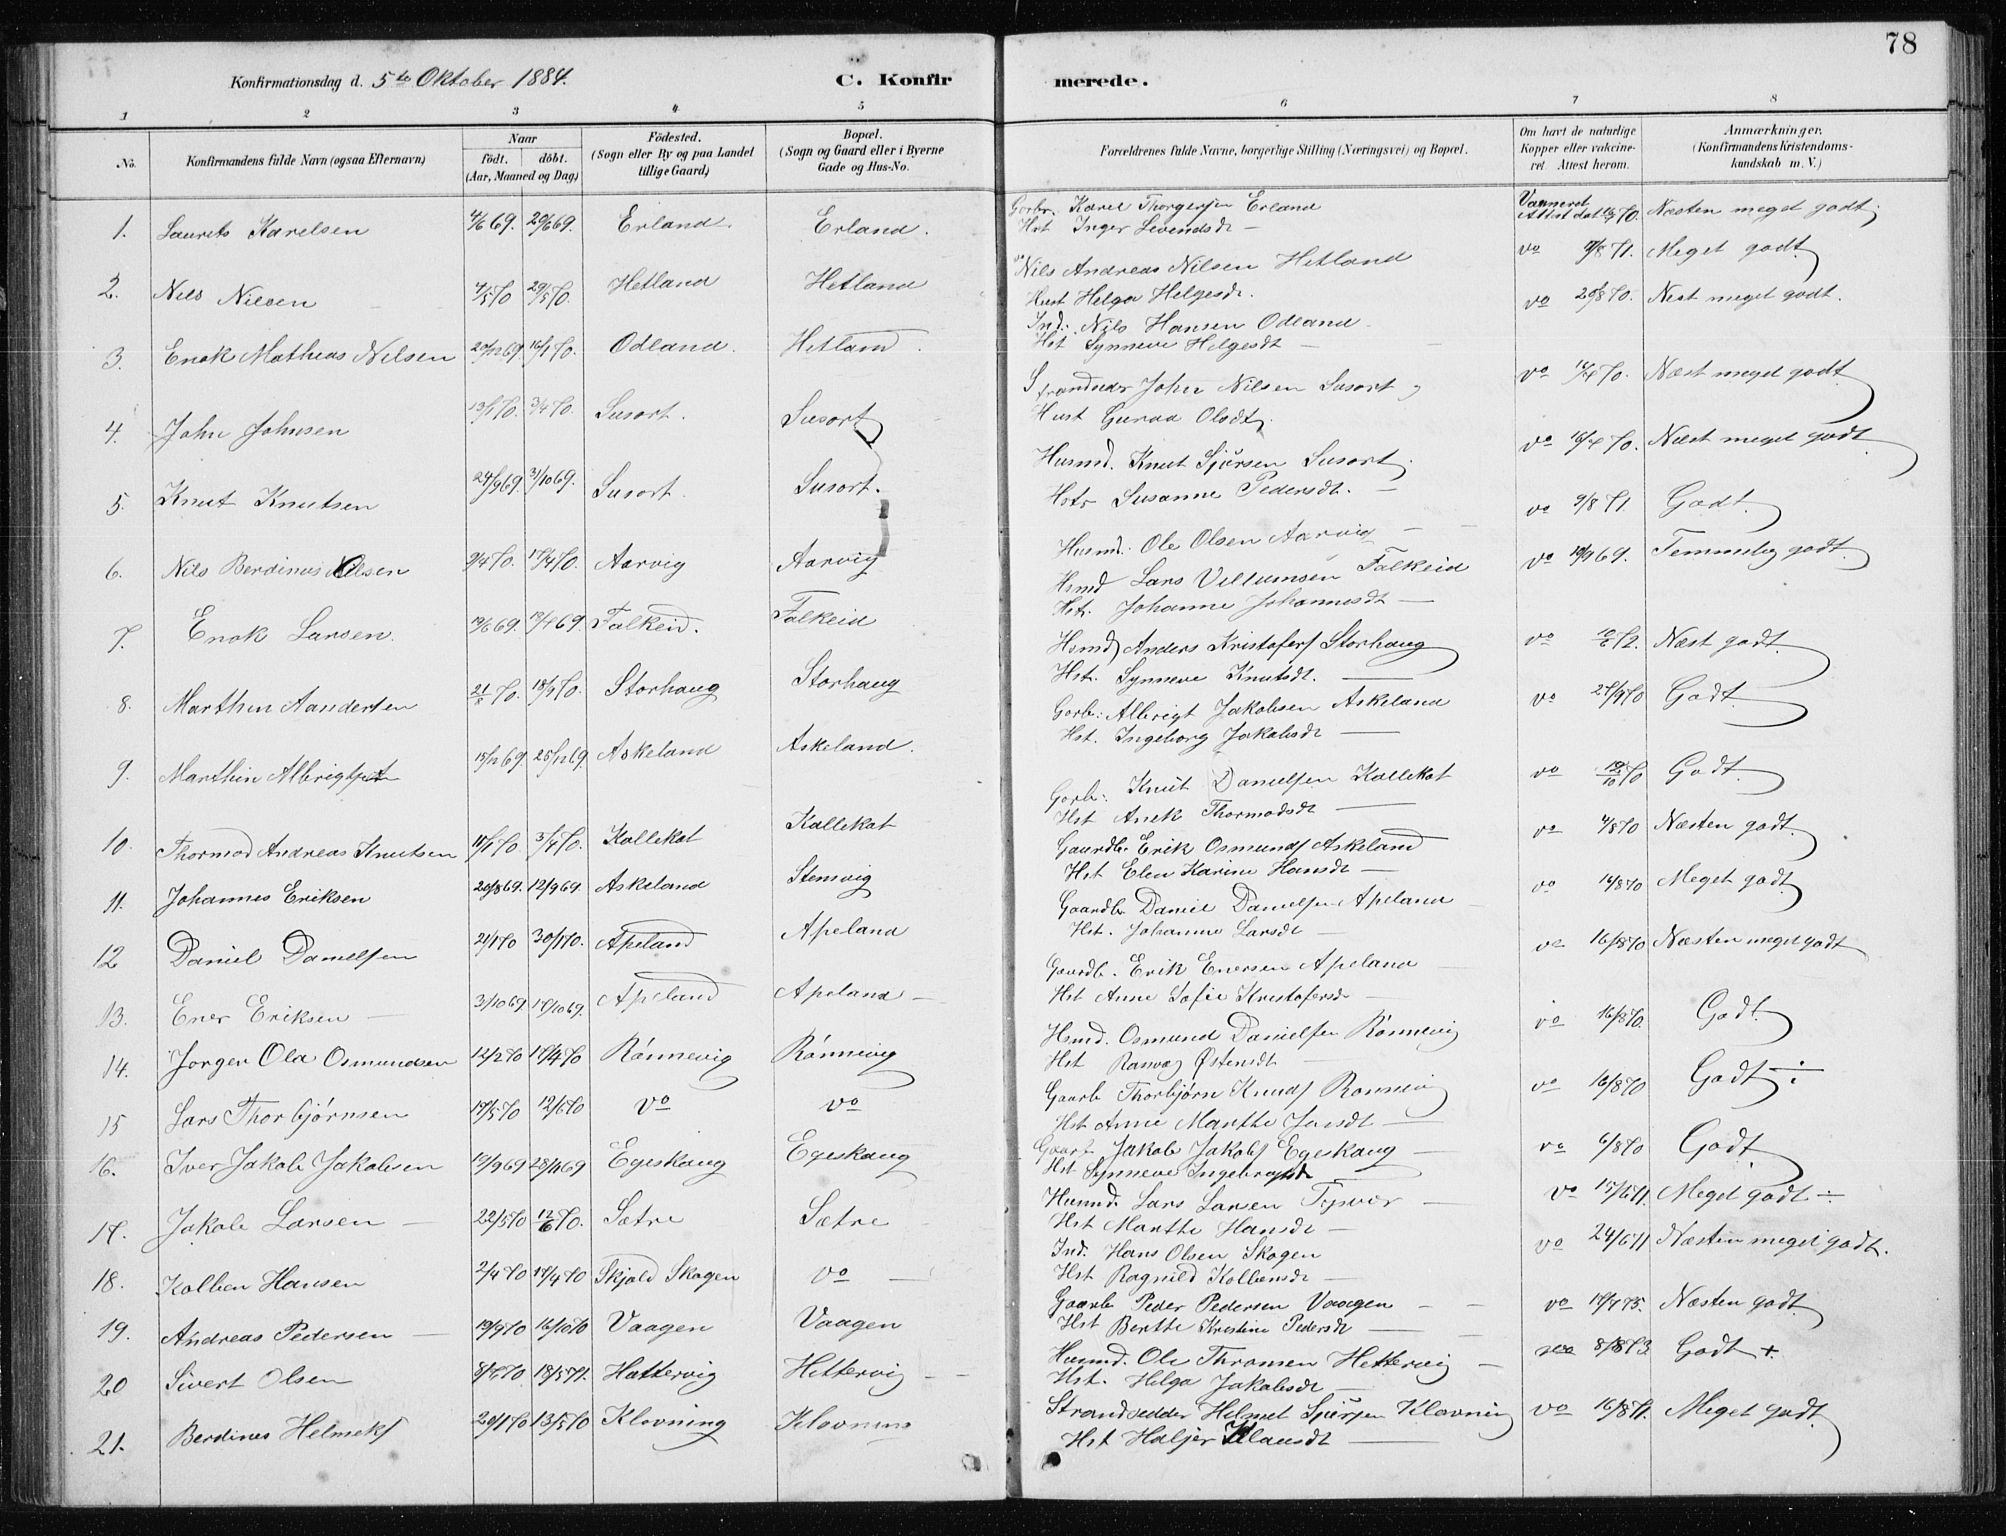 78
Konfirmationsdag d. 5te Oktober 1884.
C. Konfir merede.
1 2 3 4 5 6 7 8
No.
Konfirmandens fulde Navn (ogsaa Efternavn)
Naar
födt. döbt.
(Aar, Maaned og Dag)
Födested.
(Sogn eller By og paa Landet
tillige Gaard)
Bopæl.
(Sogn og Gaard eller i Byerne
Gade og Hus-No.
Forældrenes fulde Navne, borgerlige Stilling (Næringsvei) og Bopæl.
Om havt de naturlige
Kopper eller vakcine-
ret Attest herom.
Anmærkninger.
(Konfirmandens Kristendoms-
kundskab m. V.)
1. Laurits Karelsen 4/6 69. 20/6 69. Erland. Erland. Gorbr. Karel Thorgersen Erland Attest dat Næsten meget godt
Hst Inger Sivendsdt —
2. Nils Nilsen 4/5 70 29/5 70. Hetland Hetland Nils Andreas Nilsen Hetland vo 9/8 71. Meget godt
Hust Helga Helgesdt.
3. Enok Mathias Nilsen 20/12 69 16/1 70. Odland. Hetland Ind. Nils Hansen Odland vo 20/8 70. Nest meget godt.
Hst Synneve Helgesdt —
4. John Johnsen 13/1 70. 3/4 70. Susort. Susort Strandsidr John Nilsen Susort vo 70. Næst meget godt
Hust Guroa Olsdt.
5. Knut Knutsen 24/9 69. 31/10 69. Susort. Susort. Husmd. Knut Sjursen Susort vo 70. Næst meget godt
Hstr Susanne Pedersdt. —
6. Nils Berdinus Olsen 9/4 70. 17/4 70. Aarvig Aarvig Husmd. Ole Olsen Aarvig — vo 9/8 71. Godt.
7. Enok Larsen. 69. 69. Falkeid. Falkeid Hsmd Lars Villumsen Falkeid vo 19/9 69. Temmelig godt
Hst. Johanne Johannesdt —
8. Marthin Aandersen 21/8 70. 18/9 70. Storhaug Storhaug Hsmd Anders Kristofers Storhaug vo 72. Næst godt.
Hst. Synneve Knutsdt. —
9. Marthin Albrigtsen 15/11 69. 25/12 69. Askeland Askeland. Gorb: Albrigt Jakobsen Askeland vo 27/9 70 Godt.
Hst. Ingeborg Jakobsdt —
10. Thormod Andreas Knutsen 70. 3/4 70. Kallekot Kallekot Gorb: Knut Danielsen Kallekot vo 70 Godt.
Hst Anek Thormodsdt —
11. Johannes Eriksen 20/8 69. 12/9 69. Askeland Stemvig Gaardb. Erik Osmunds Askeland vo 4/8 70 Næsten godt.
Hst Elen Karine Hansdt —
12 Daniel Danielsen 21/1 70 30/1 70. Apeland Apeland Gaardb. Daniel Danielsen Apeland vo 14/8 70 Meget godt
Hst. Johanne Larsdt —
13. Ener Eriksen — 3/10 69 17/10 69. Apeland Apeland — Gaardb. Erik Enersen Apeland — vo 16/8 70 Næsten meget godt
Hst Anne Sofie Kristofersdt —
14. Jorgen Ola Osmundsen 12/2 70 17/4 70 Rónnevig Rónnevig Hsmd. Osmund Danielsen Rónnevig vo 16/8 70. Godt.
Hst Ranveg Østensdt —
15 Lars Thorbjørnsen 17/5 70 12/6 70 vo vo Gaarb Thorbjørn Knuds Ronnevig vo 16/8 70 Godt ÷
Hst Anne Marthe Jansdt —
16. Iver Jakob Jakobsen 19/9 69 28/11 69 Egeskaug Egeskaug Gaarb Jakob Jakobs Egeskaug — vo 6/8 70 Godt
Hst Synneve Ingebrogtsdt
17. Jakob Larsen — 22/5 70 12/6 70. Sætre Sætre Husmd. Lars Larsen Tysvær — vo 15/6 71. Meget godt ÷
Hst Marthe Hansdt —
18. Kolben Hansen 2/4 70 17/4 70 Skjold Skogen vo — Ind. Hans Olsen Skogen vo 24/6 71 Næsten meget godt.
Hst Ragnild Kolbensdt —
19. Andreas Pedersen — 19/9 70 16/10 70 Vaagen Vaagen Gaarb Peder Pedersen Vaagen — — vo 75. Næsten godt
Hst Berthe Kristine Pedersdt —
20 Sivert Olsen 70 18/5 71. Hattervig Hettervig — — Husmd. Ole Thromsen Hettervig — vo 8/8 73 Godt +.
Hst. Helga Jakobsdt —
21. Berdines Helmeks 20/1 70 13/5 70 Klovning Klovning Strandsedder Helmet Sjursen Klovning vo 16/8 71. Meget godt.
Hst Haljer Klausdt —